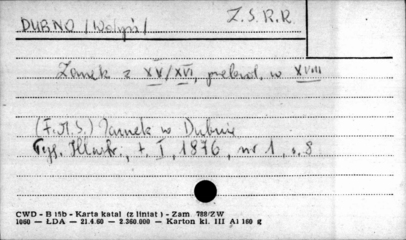 DUBNO /Wołyń/ Z.S.R.R
Zamek z XV/XVI, przebud. w XVIII
(F.M.S.) Zamek w Dubnie
Tyg. Illustr., t. I, 1876, nr 1, s. 8
CWD - B 15b - Karta katal (z liniat) - Zam. 788/ZW
1060 — ŁDA — 21.4.60 - 2.360.000 — Karton kl. III A1 160 g